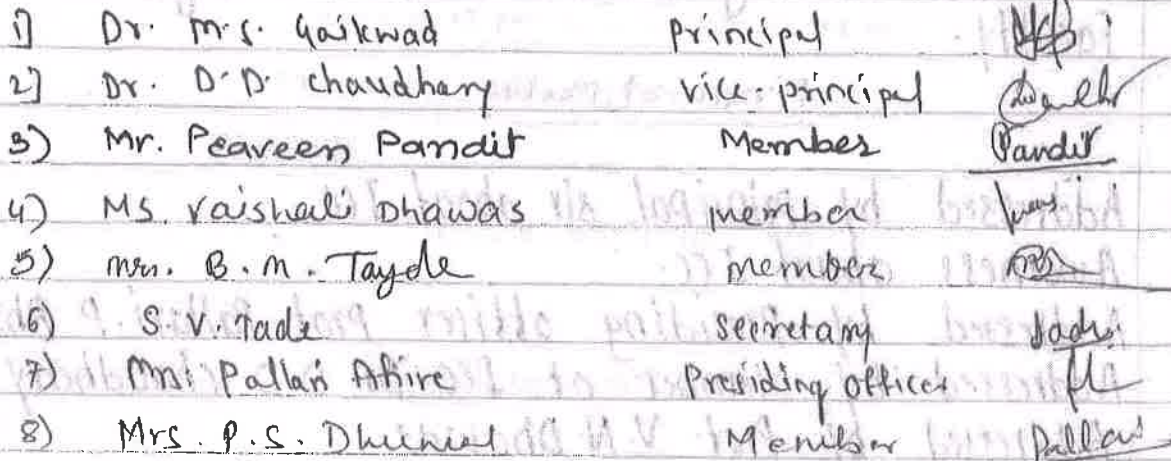 1] Dr. M.S. Gaikwad Principal
2] Dr. D.D. Chaudhary Vice-principal
3) Mr. Peaveen Pandit Member Pandit
4) Ms. Vaishali Dhawas Member
5) Mrs. B.M. Tayde Member
6) S.V. Tade Secretary
7) Mrs. Pallavi Ahire Presiding Officer
8) Mrs. P.S. Member Pallavi